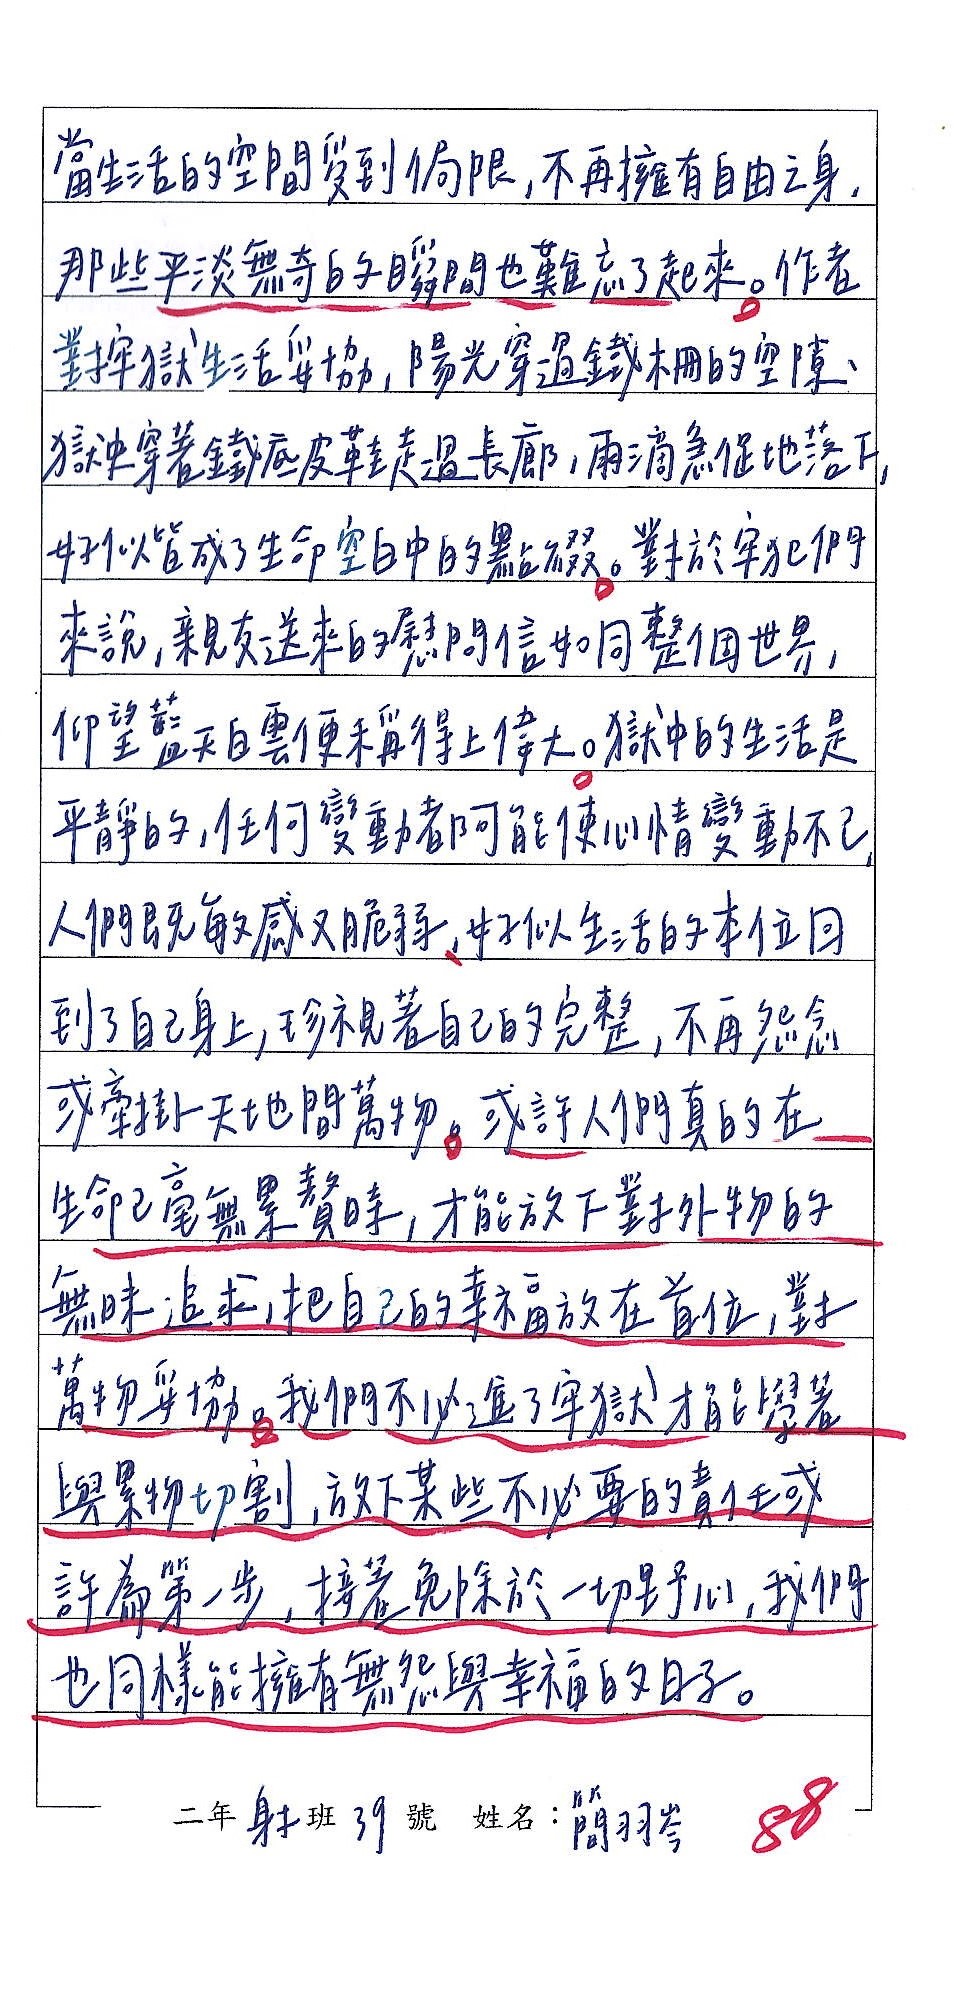 當生活的空間受到侷限，不再擁有自由之身，
那些平淡無奇的瞬間也難忘了起來。作者
對牢獄生活妥協，陽光穿過鐵柵的空隙、
獄吏穿著鐵底皮鞋走過長廊，雨滴急促地落下，
好似皆成了生命空白中的點綴。對於牢犯們
來說，親友送來的慰問信如同整個世界，
仰望藍天白雲便稱得上偉大。獄中的生活是
平靜的，任何變動者阿能使心情變動不已，
人們既敏感又脆弱，好似生活的本位回
到了自己身上，珍視著自己的完整，不再怨念
或牽掛天地間萬物。或許人們真的在
生命已毫無累贅時，才能放下對外物的
無昧追求，把自己的幸福放在首位，對
萬物妥協。我們不必進了牢獄才能學著
與累物切割，放下某些不必要的責任或
許為第一步，接著免除於一切野心，我們
也同樣能擁有無怨與幸福的日子。
二年 射 班 39 號 姓名：簡羽岑
88